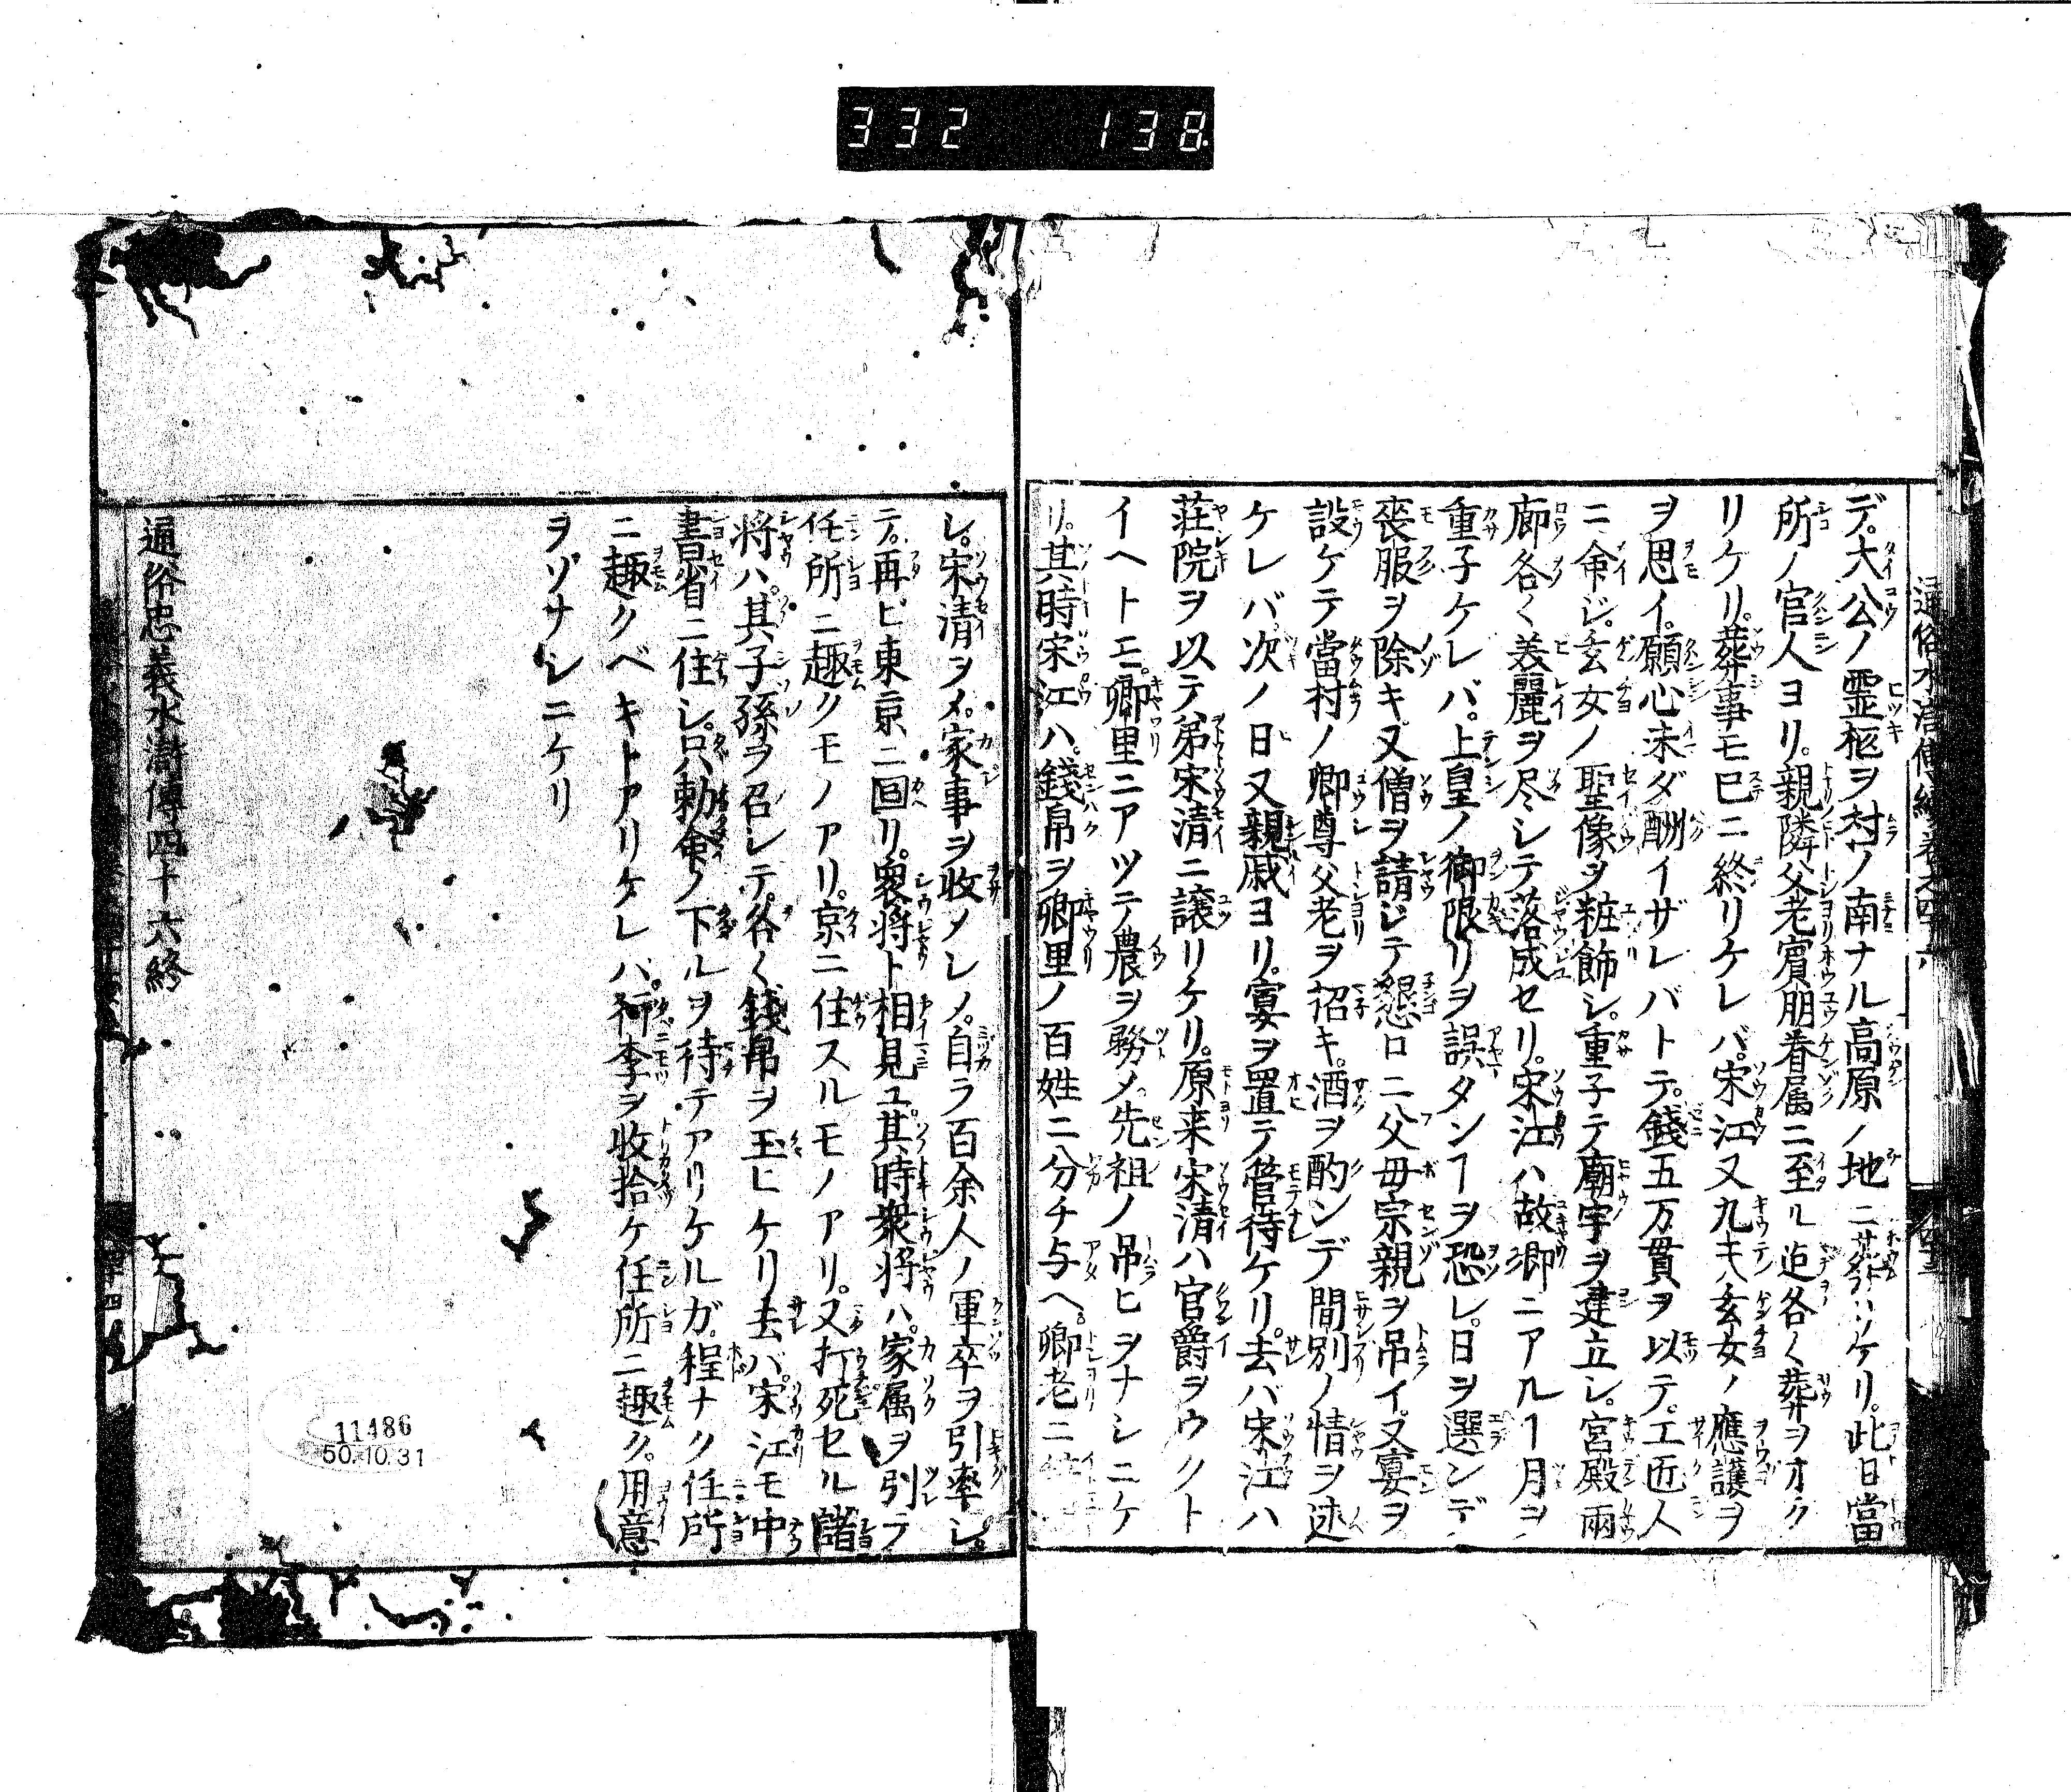 332 138
通俗水滸傳編巻之四十六
デ。大公ノ霊柩ヲ村ノ南ナル高原ノ地ニ葬ケリ。此日當
所ノ官人ヨリ。親隣父老賓朋眷属ニ至ル迠各〱葬ヲオク
リケリ。葬事モ已ニ終リケレバ。宋江又九天玄女ノ應護ヲ
ヲ思イ。願心未ダ酬イザレバトテ。錢五万貫ヲ以テ。工匠人
ニ命ジ。玄女ノ聖像ヲ粧飾シ。重子テ廟宇ヲ建立シ。宮殿兩
廊各〱美麗ヲ尽シテ落成セリ。宋江ハ故郷ニアルヿ月ヲ
重子ケレバ。上皇ノ御限リヲ誤タンヿヲ恐レ。日ヲ選ンデ
喪服ヲ除キ又僧ヲ請ジテ懇ロニ父母宗親ヲ吊イ。又宴ヲ
設ケテ當村ノ郷尊父老ヲ招キ。酒ヲ酌ンデ間別ノ情ヲ述
ケレバ次ノ日又親戚ヨリ。宴ヲ置テ管待ケリ。去バ宋江ハ
荘院ヲ以テ弟宋清ニ譲リケリ。原来宋清ハ官爵ヲウクト
イヘトモ。郷里ニアツテ農ヲ務メ。先祖ノ吊ヒヲナシニケ
リ。其時宋江ハ。錢帛ヲ郷里ノ百姓ニ分チ与ヘ。郷老ニ
レ。宋清ヲメ。家事ヲ收メレメ。自ラ百余人ノ軍卒ヲ引率シ。
テ。再ビ東京ニ回リ。衆将ト相見ユ。其時衆将ハ。家属ヲ引テ
任所ニ趣クモノアリ。京ニ住スルモノアリ。又打死セル諸
将ハ。其子孫ヲ召シテ。各〱錢帛ヲ玉ヒケリ去バ。宋江モ中
書省ニ住シ。只勅命ノ下ルヲ待テアリケルガ。程ナク任所
ニ趣クベキトアリケレバ。行李ヲ收拾ケ任所ニ趣ク。用意
ヲゾナシニケリ
通俗忠義水滸傳四十六終
11486
50.10.31